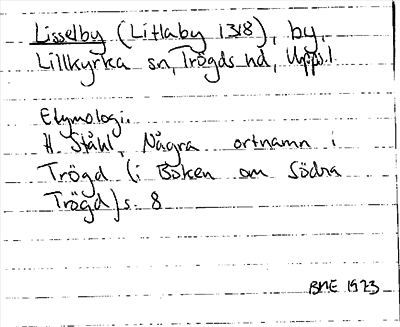 Lisselby (Litlaby 1318), by,
Lillkyrka sn, Trögds hd, Upps. l
Etymologi.
H Ståhl, Några ortnamn i
Trögd (i Boken om Södra
Trögd) s. 8
BME 1973